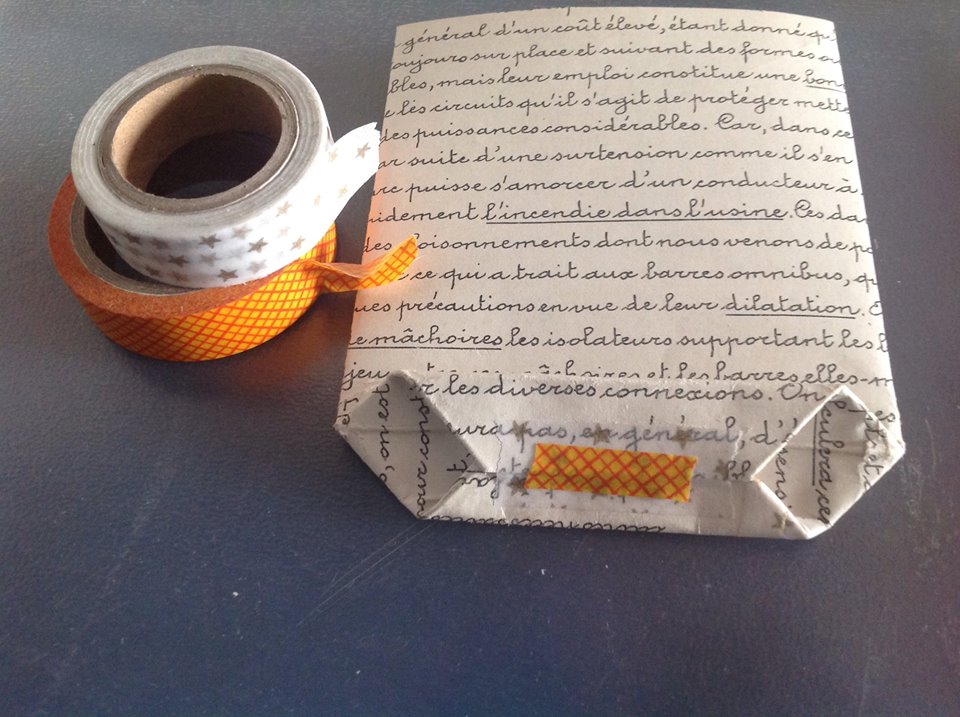 général d'un coût élevé, étant donné qu'
oujours sur place et suivant des formes
bles, mais leur emploi constitue une bon
e les circuits qu'il s'agit de protéger mett
des puissances considérables. Car, dans ce
ar suite d'une surtension comme il s'en
rc puisse s'amorcer d'un conducteur à
idement l'incendie dans l'usine. Ces da
des foisonnements dont nous venons de pa
ce qui a trait aux barres omnibus, qu
ues précautions en vue de leur dilatation.
e mâchoires les isolateurs supportant les b
jeu entre mâchoires et les barres elles-m
r les diverses connexions. On
ura pas, en général, d'